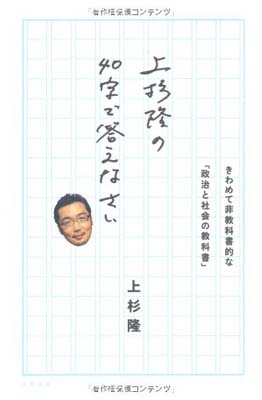 「著作権保護コンテンツ」
上杉隆の
40字で答えなさい
きわめて非教科書的な
「政治と社会の教科書」
上杉隆
「著作権保護コンテンツ」